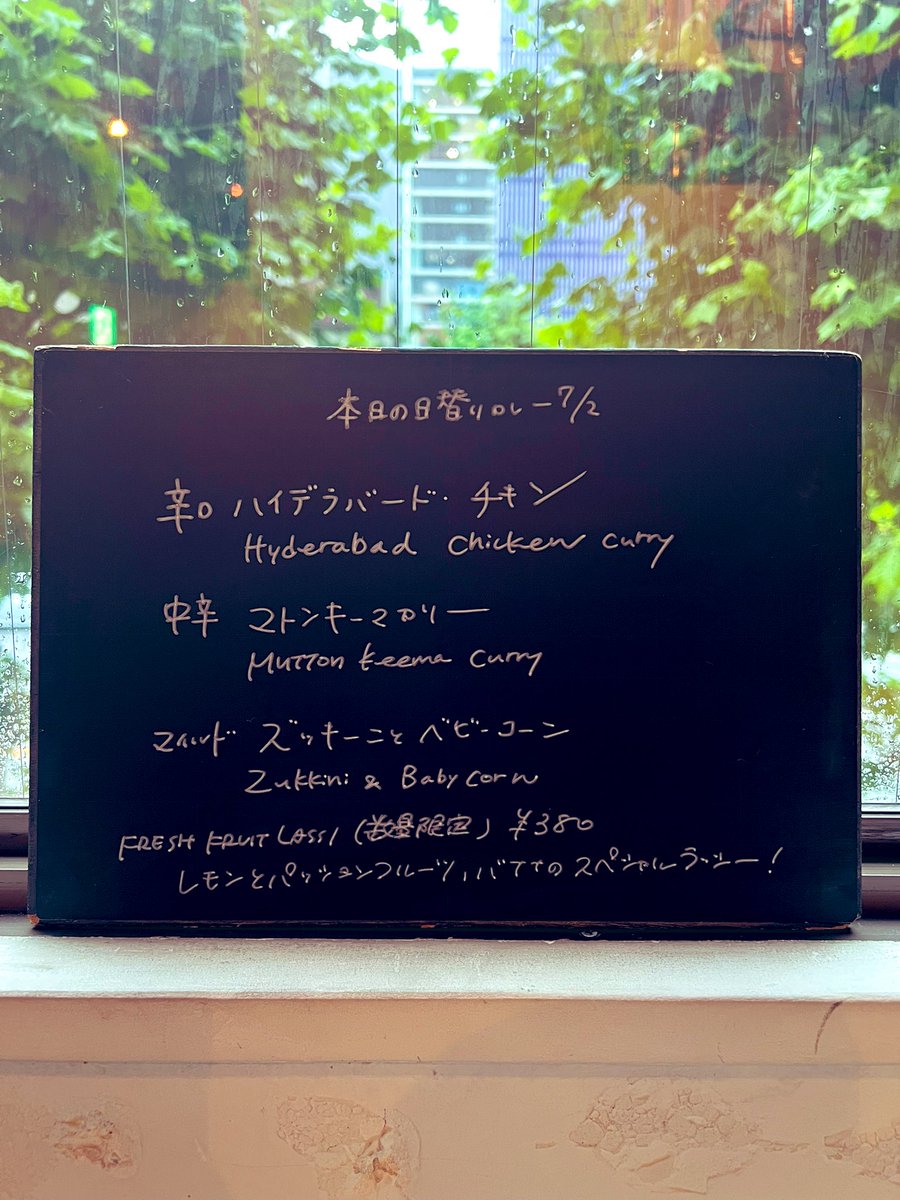 本日の日替りカレー 7/2
辛口 ハイデラバード・チキン
Hyderabad chicken curry
中辛 マトンキーマカリー
Mutton keema curry
マイルド ズッキーニとベビーコーン
Zukkini & Baby corn
FRESH FRUIT LASSI (数量限定) ¥380
レモンとパッションフルーツ、バナナのスペシャルラッシー!